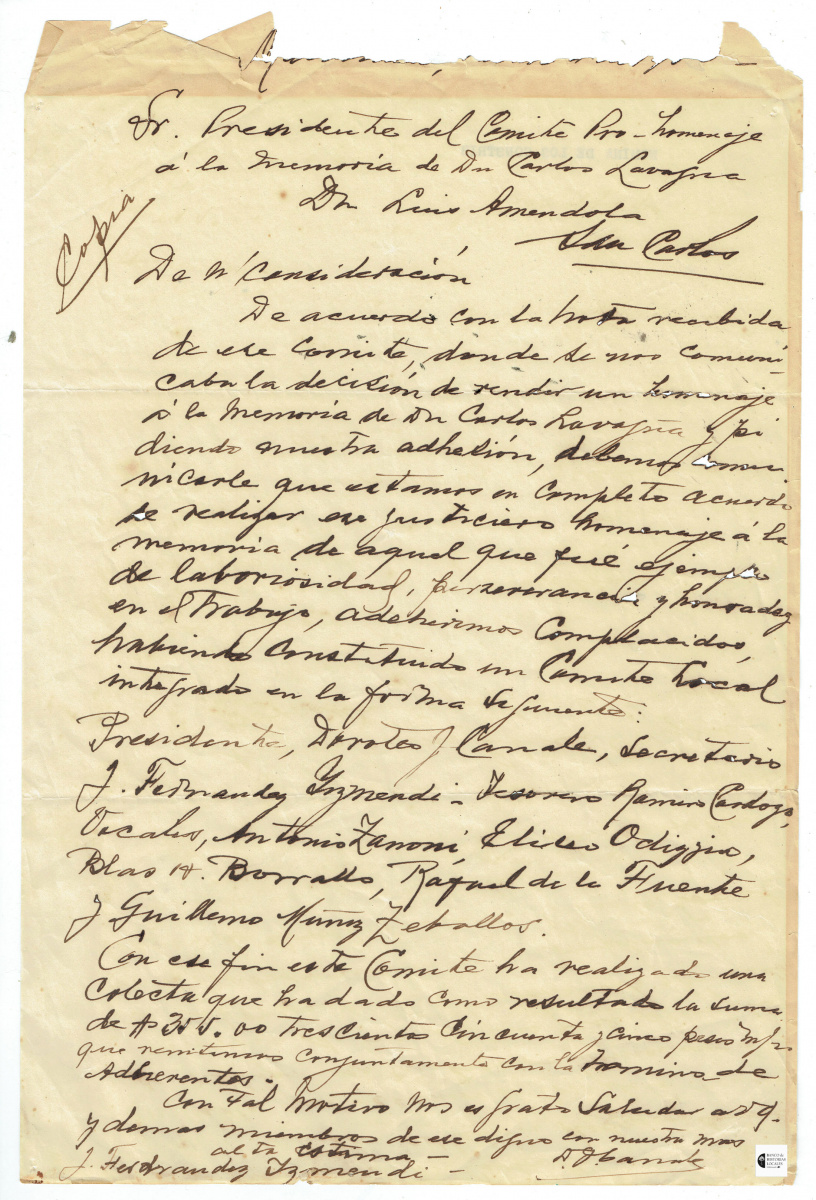 Sr. Presidente del Comite Pro-homenaje
á la Memoria de Dn Carlos Lavagna
Dn Luis Amendola
San Carlos
Copia
De n/ consideración
De acuerdo con la nota recibida
de ese Comite, donde se nos comuni-
caba la decisión de rendir un homenaje
á la Memoria de Dn Carlos Lavagna y pi
diendo nuestra adhesión, debemos comu-
nicarle que estamos en completo acuerdo
se realizar ese justiciero homenaje á la
memoria de aquel que fué ejemplo
de laboriosidad, perseverancia y honradez
en el trabajo, adherimos complacidos,
habiendo constituido un Comite Local
integrado en la forma siguiente:
Presidente, Doroteo J Canale, Secretario
J. Fernandez Yzmendi - Tesorero Ramiro Cardozo,
Vocales, Antonio Zanoni, Eliseo
Blas H. Borrallo, Ráfael de la Fuente
y Guillermo Muñiz Zeballos.
Con ese fin este Comite ha realizado una
colecta que ha dado como resultado la suma
de $ 355.00 trescientos cincuenta y cinco pesos m/n
que remitimos conjuntamente con la nomina de
Adherentes.
Con tal motivo nos es grato saludar a Ud.
y demas miembros de ese digno con nuestra mas
alta estima -
J. Fernandez Yzmendi - D. J Canale
BANCO de HISTORIAS LOCALES